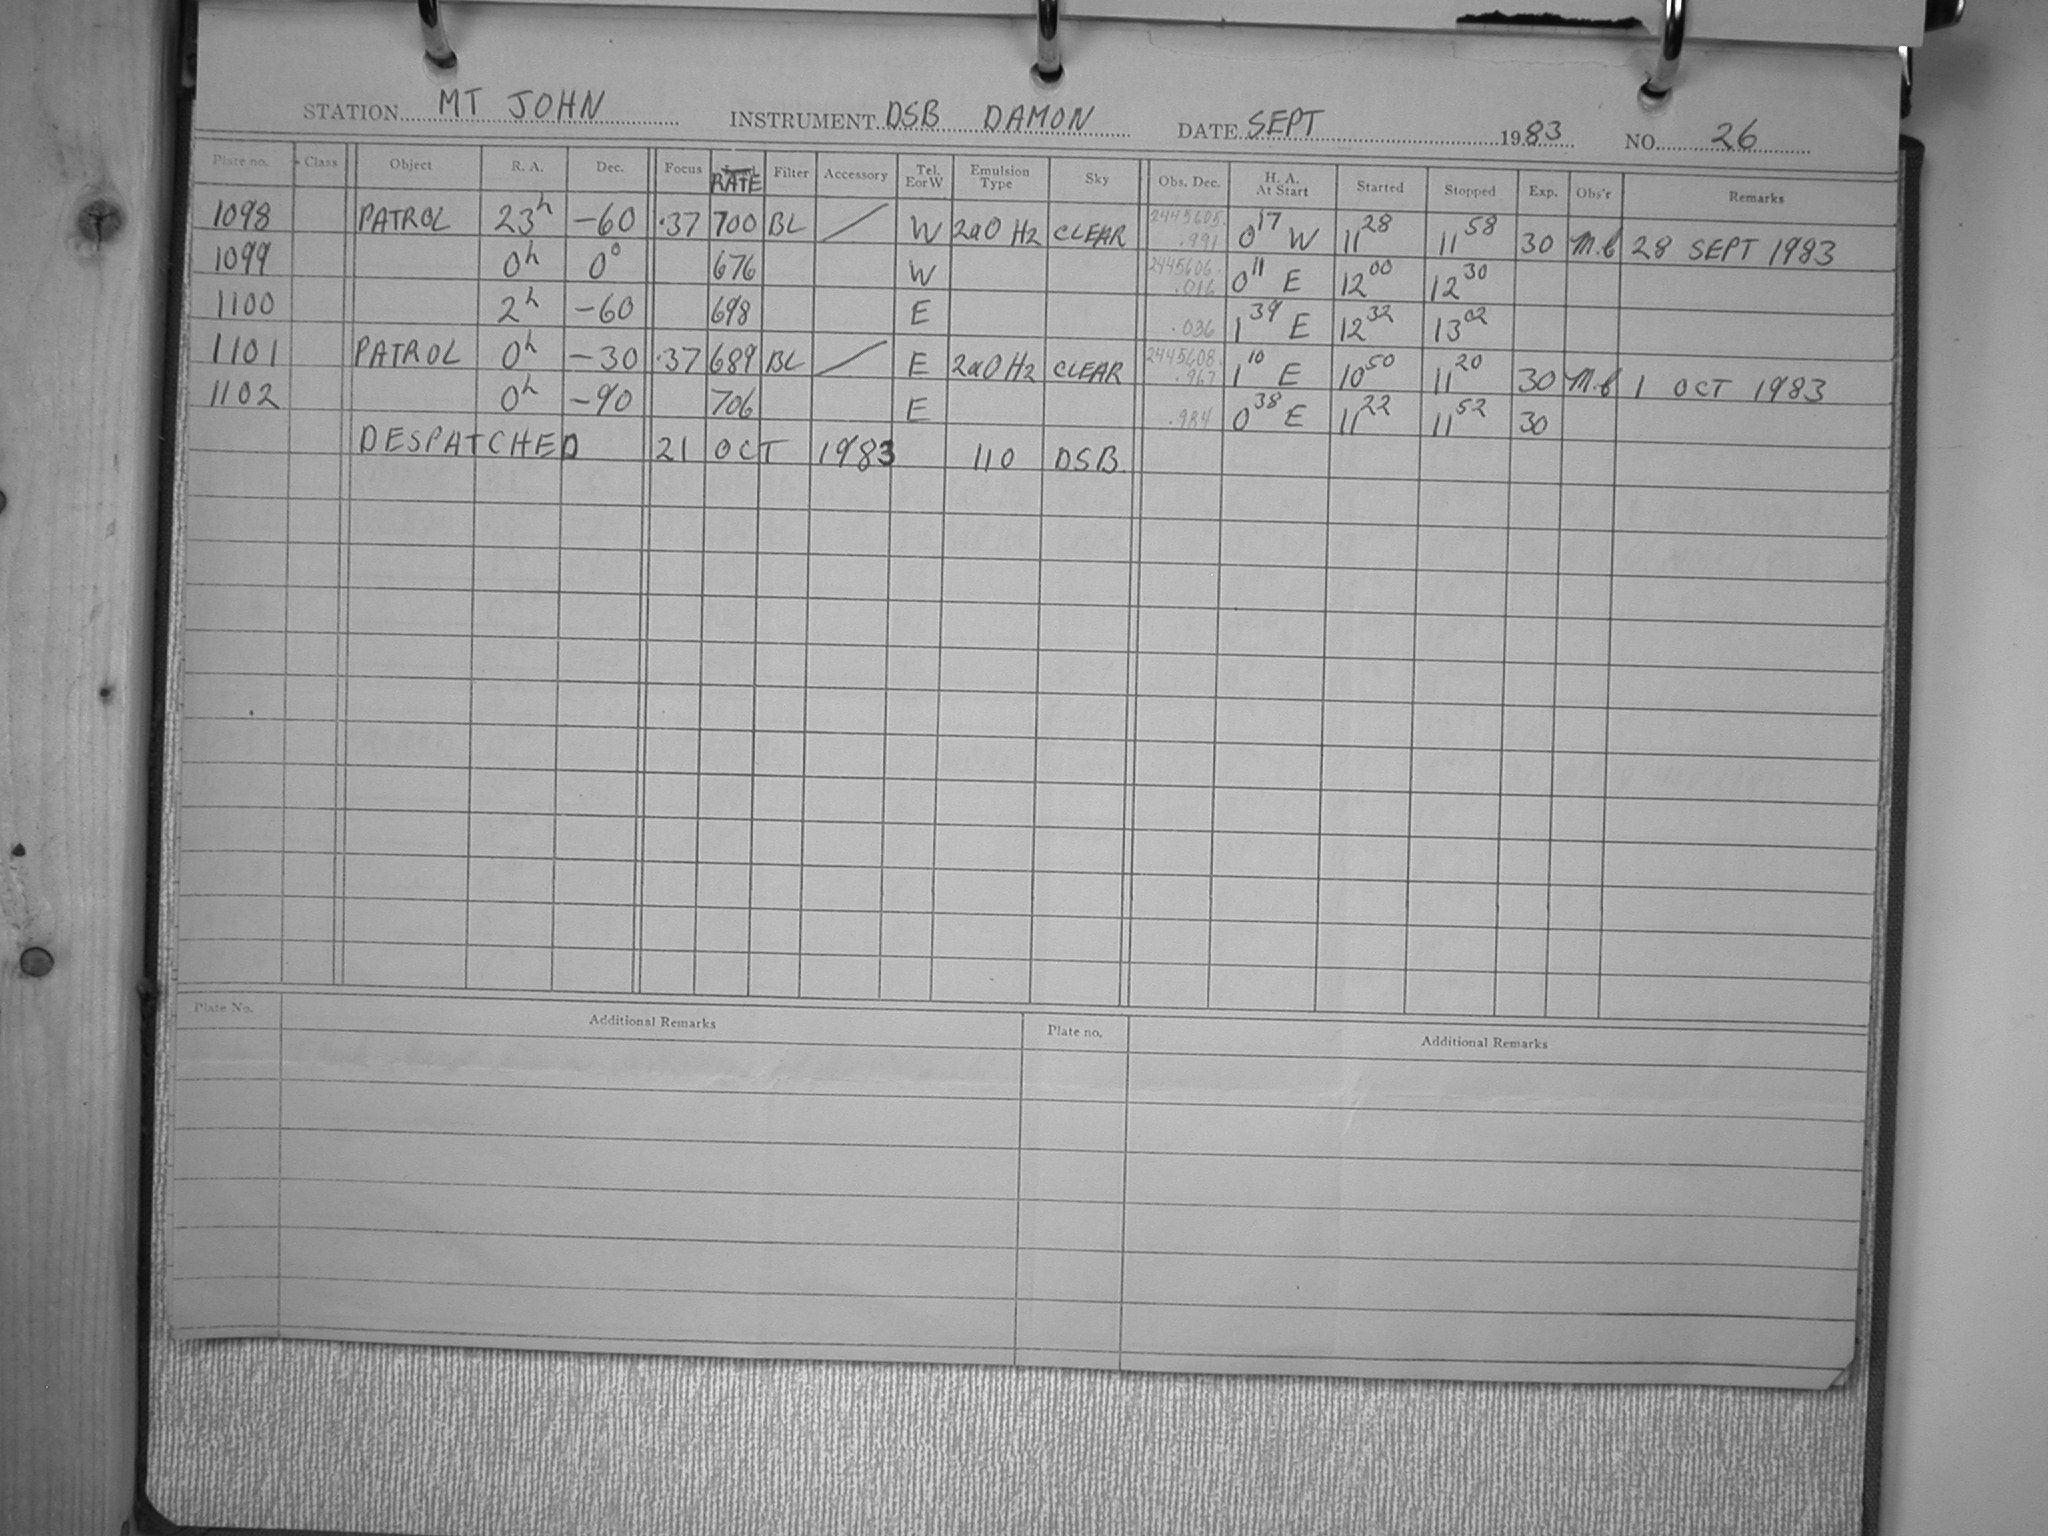 STATION MT JOHN INSTRUMENT DSB DAMON DATE SEPT 1983 NO. 26
Plate no. Class Object R. A. Dec. Focus RATE Filter Accessory Tel. E or W Emulsion Type Sky Obs. Dec. H. A. At Start Started Stopped Exp. Obs'r Remarks
1098 PATROL 23h -60 .37 700 BL / W 2aO Hz CLEAR 2445605. .991 0 17 W 11 28 11 58 30 M.C 28 SEPT 1983
1099 0h 0° 676 W 2445606. .016 0 11 E 12 00 12 30
1100 2h -60 698 E .036 1 39 E 12 32 13 02
1101 PATROL 0h -30 .37 689 BL / E 2aO Hz CLEAR 2445608. .967 1 10 E 10 50 11 20 30 M.C 1 OCT 1983
1102 0h -90 706 E .984 0 38 E 11 22 11 52 30
DESPATCHED 21 OCT 1983 110 DSB
Plate No. Additional Remarks Plate no. Additional Remarks